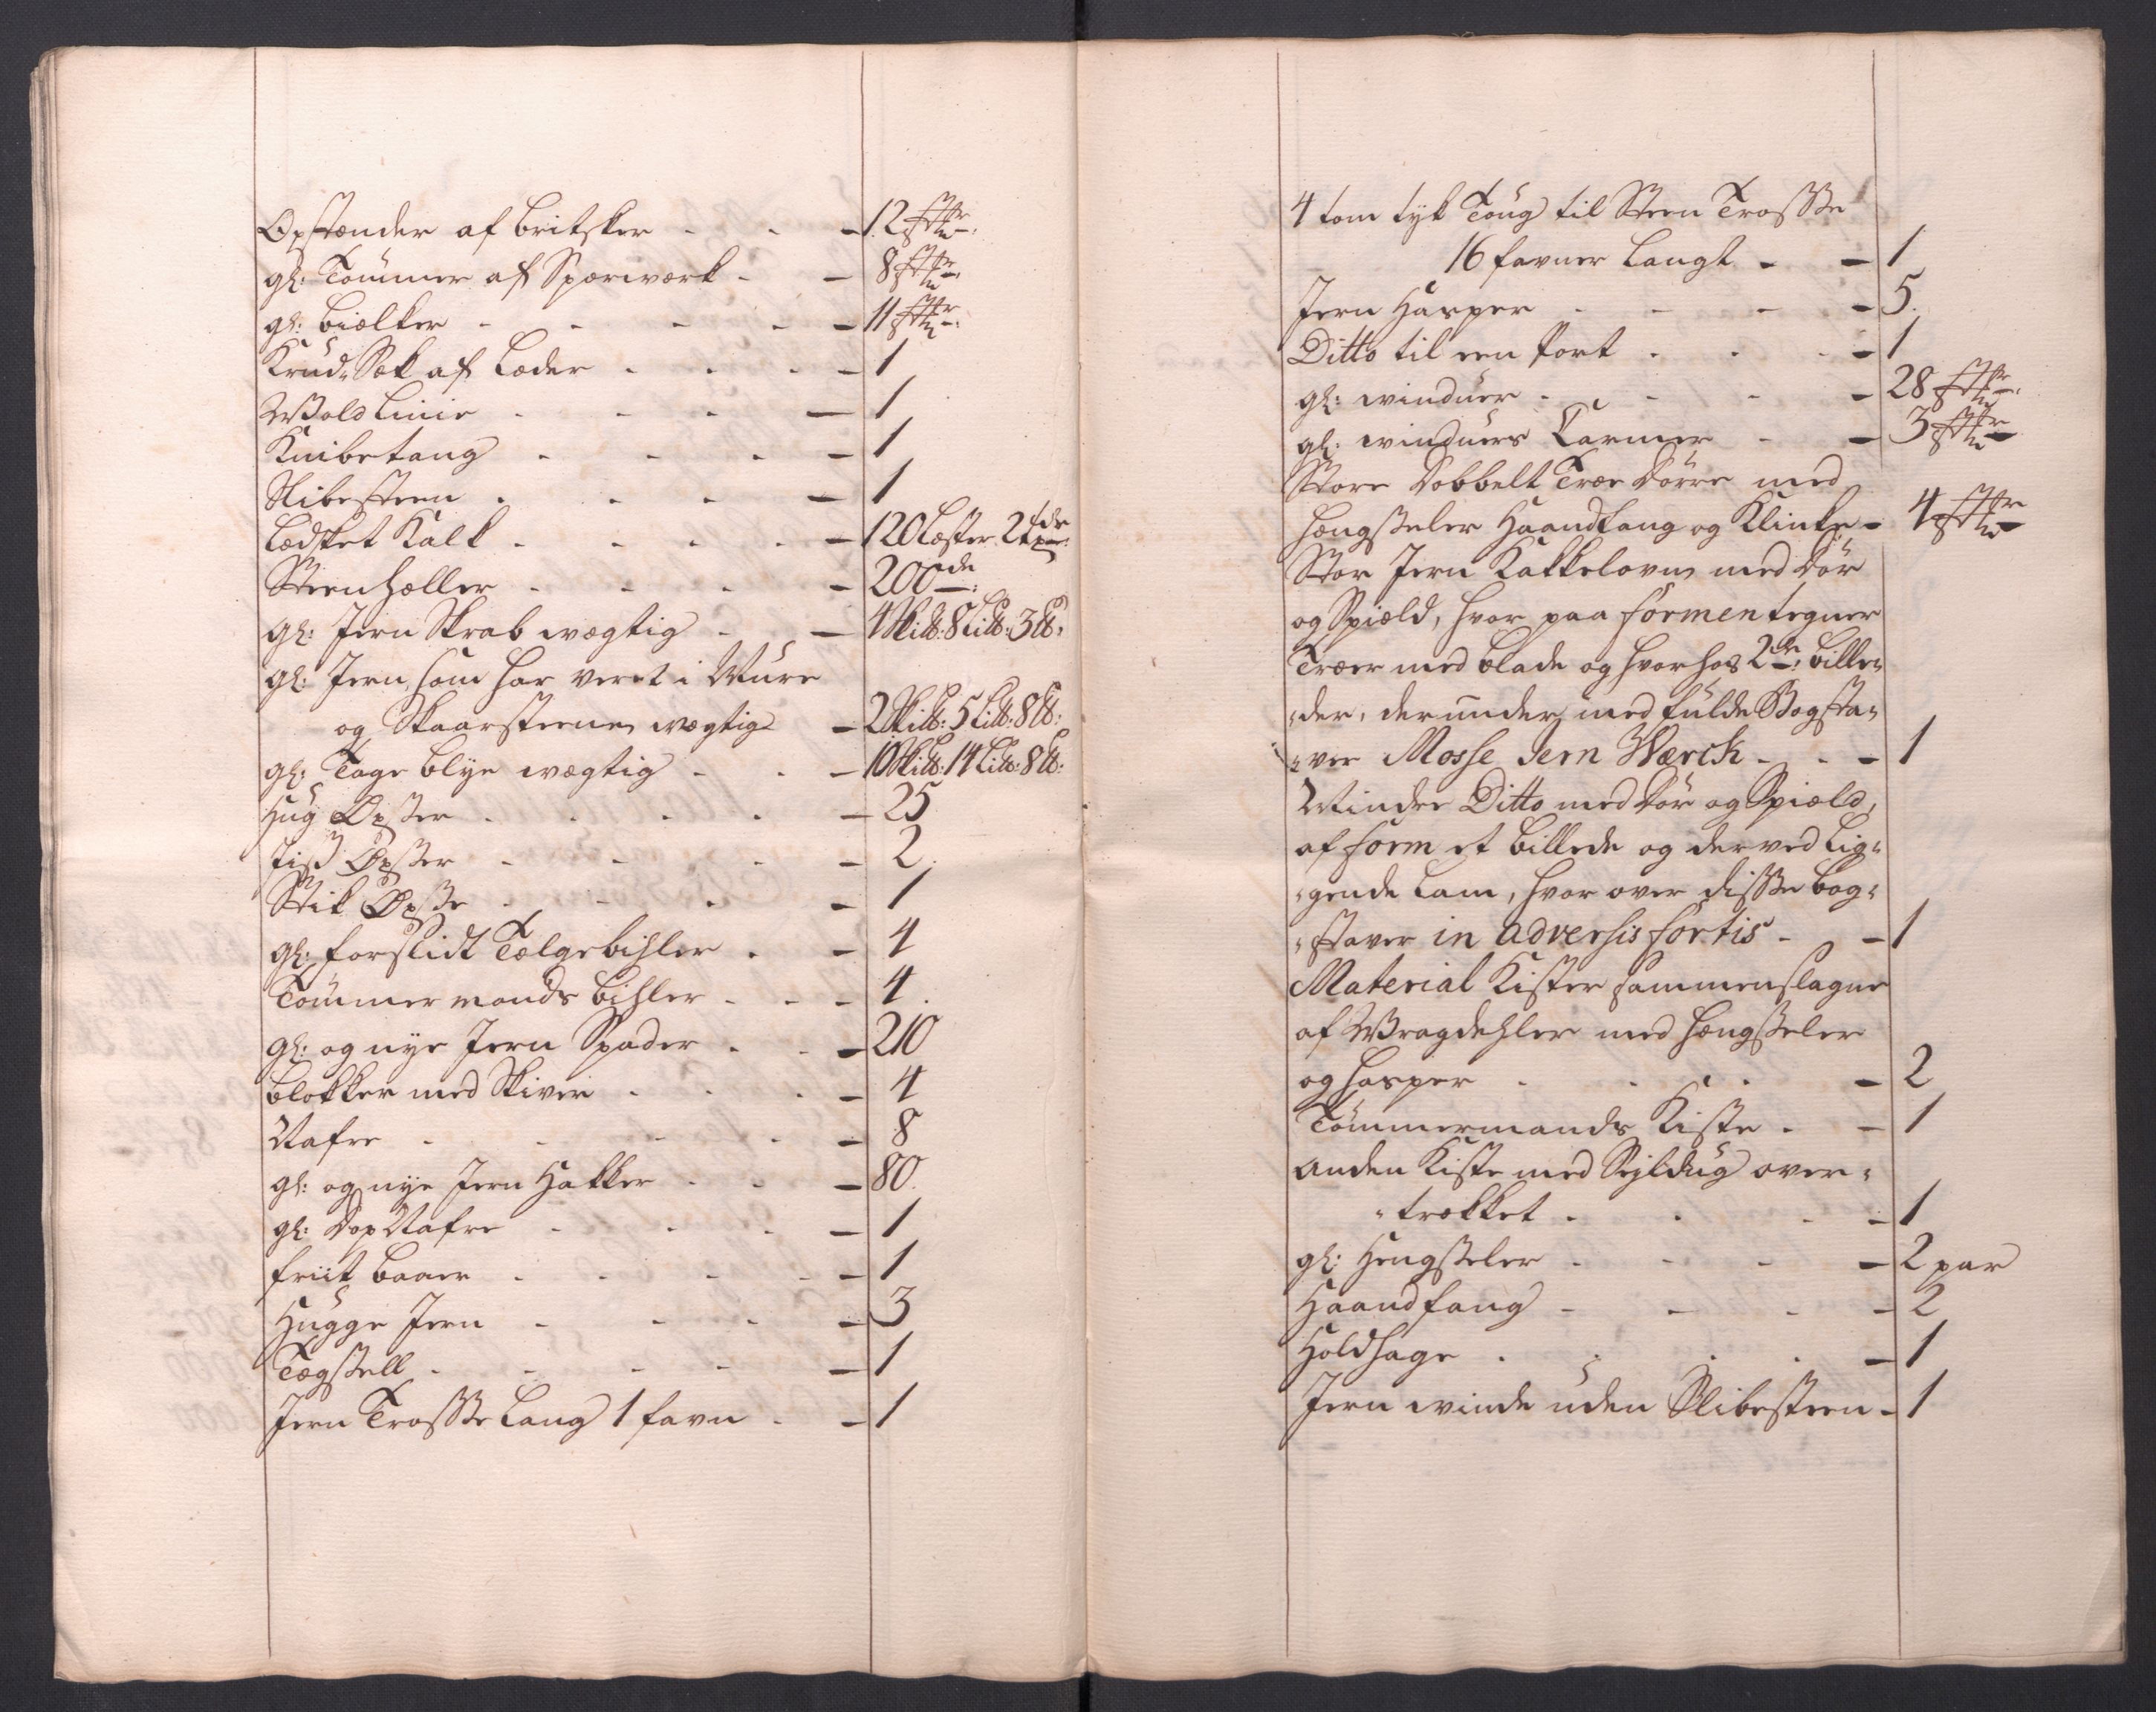 Opstænder af britsker - - - 12 st:
gl: Tømmer af Sperværk - - 8 st:
gl: bielker - - - - - 11 st:
Krud-Sæk af Læder - - - - 1
Vold Linie - - - - 1
Knibetang - - - - 1
Slibesteen - - - - 1
Lædsket Kalk - - - - - 120 Læster 2 tdr:
Steenheller - - - - 200de:
gl: Jern Skrab vægtig - - 4 Skilb: 8 Lilb: 3 lb:
gl: Jern, som har veret i Mure
og Skaarsteene, vægtig - 2 Skilb: 5 Lilb: 8 lb:
gl: Tage blye vægtig - - - 10 Skilb: 14 Lilb: 8 lb:
Hug Øxser - - - - - 25
Øxser - - - - 2
Stik Øxse - - - - 1
gl: forslidt Tælgebihler - - 4
Tømmermands bihler - - - 4
gl: og nye Jern Spader - - - 210
blokker med Skiver - - - 4
Nafre - - - - - 8
gl: og nye Jern Hakker - - - 80
gl: Nafre - - - - 1
baaer - - - - - 1
Hugge Jern - - - - 3
- - - - - 1
Jern Trosse Lang 1 favn - - 1
4 tom tyk Toug til Steen Trosse
16 favner Langt - - 1
Jern Hasper - - - - 5
Ditto til een Port - - - - 1
gl: vinduer - - - - 28 st:
gl: vinduers Carmer - - 3 st:
Store Dobbelt Træe Dørre med
Hængsseler Haandfang og Klinke - 4 st:
Stor Jern Kakkelovn med Dør
og Spiæld, hvor paa formen tegner
Træer med blade og hvorhos 2de: bille-
-der, derunder med fulde Bogsta-
-ver Mosse Jern Wærch - - - 1
Mindre Ditto med Dør og Spiæld,
af form et billede og derved Lig-
-gende Lam, hvor over disse bog-
-staver in adversis fortis - - 1
Material Kister sammenslagne
af Vragdehler med Hængsseler
og Hasper - - - - 2
Tømmermands Kiste - - 1
anden Kiste med Sejldug over-
-trækket - - - - 1
gl: Hengsseler - - - - 2 par
Haandfang - - - - 2
Holdhage - - - - - 1
Jern vinde uden Slibesteen - 1